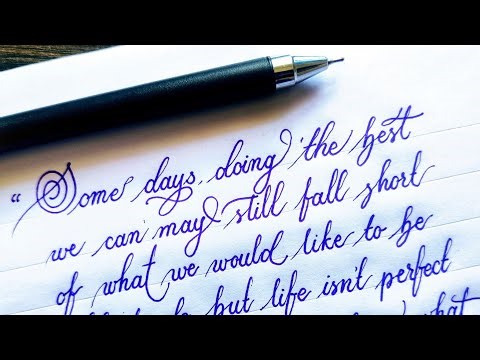 “ Some days, doing the best
we can may still fall short
of what we would like to be
but life isn't perfect
what